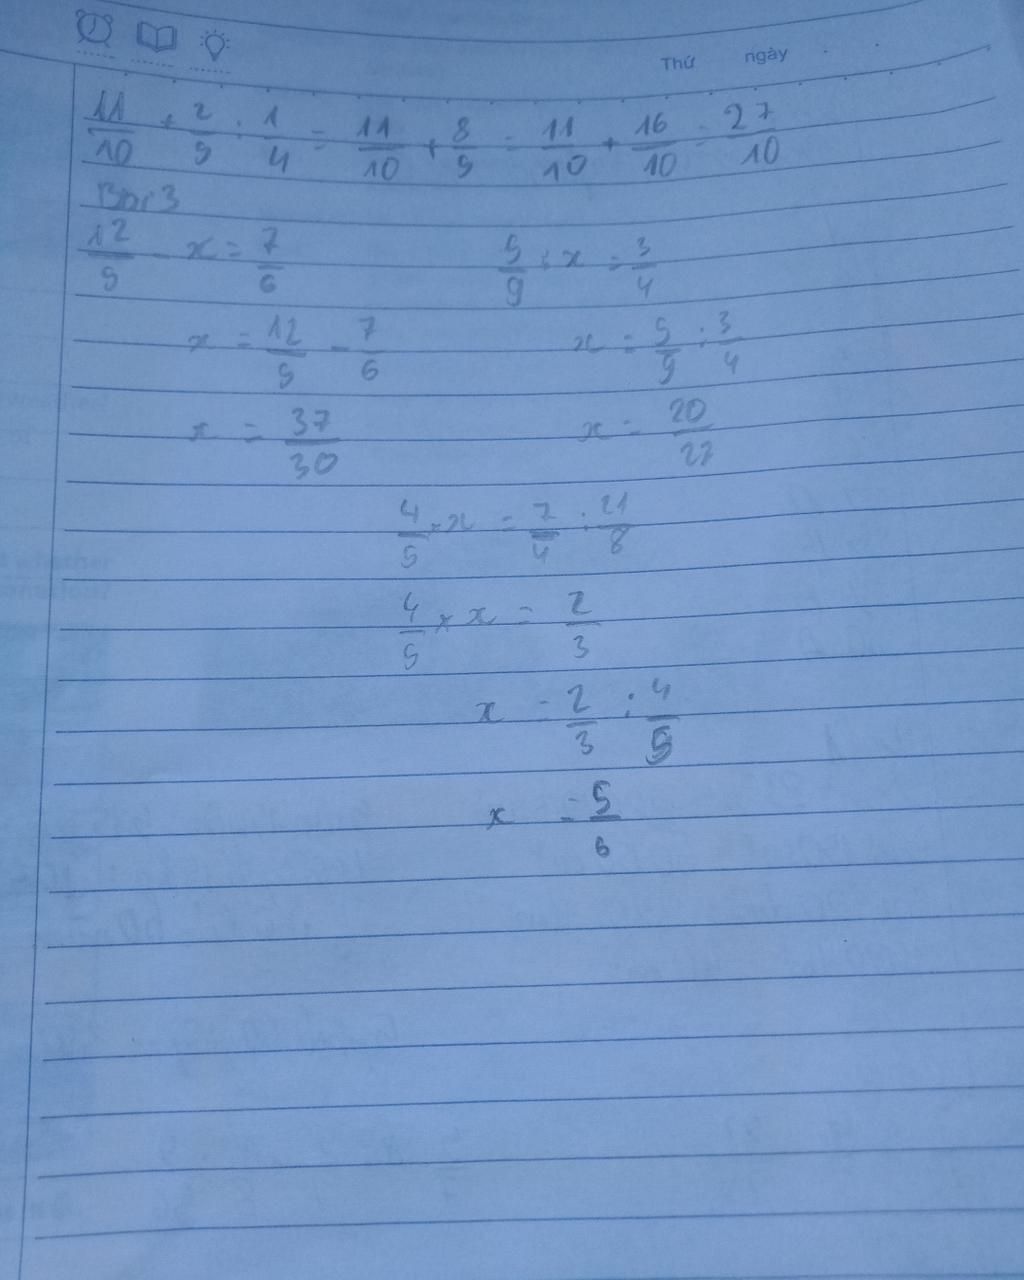 Thứ ngày
11/10 + 2/5 : 1/4 = 11/10 + 8/5 = 11/10 + 16/10 = 27/10
Bài 3
12/5 - x = 7/6 5/9 : x = 3/4
x = 12/5 - 7/6 x = 5/9 : 3/4
x = 37/30 x = 20/27
4/5 × x = 7/4 : 21/8
4/5 × x = 2/3
x = 2/3 : 4/5
x = 5/6